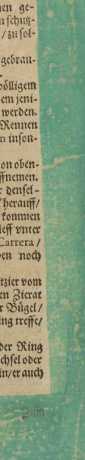 en ge-
schutz-
/ zu sol-
gebrau-
völligem
em jeni-
werden.
Rennen
inson-
on oben-
ffnemen.
densel-
herauff/
kommen
leff vnter
Carrera/
en noch
tzier vom
en Zierat
Bügel/
ing treffe/
der Ring
chsel oder
in/er auch